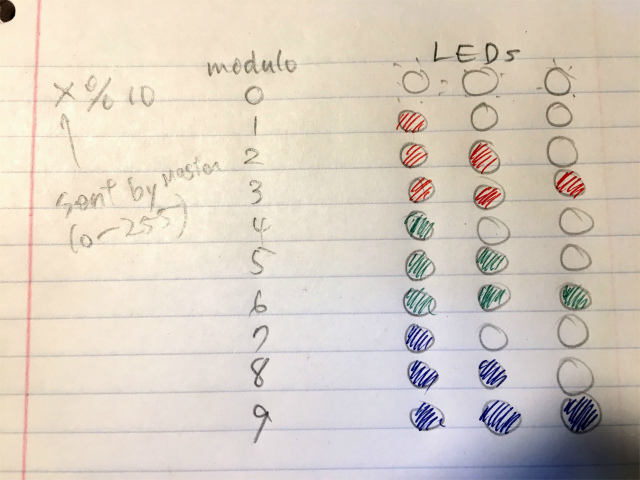 LEDs
modulo
X % 10
0
1
2
sent by Master
3
(0-255)
4
5
6
7
8
9